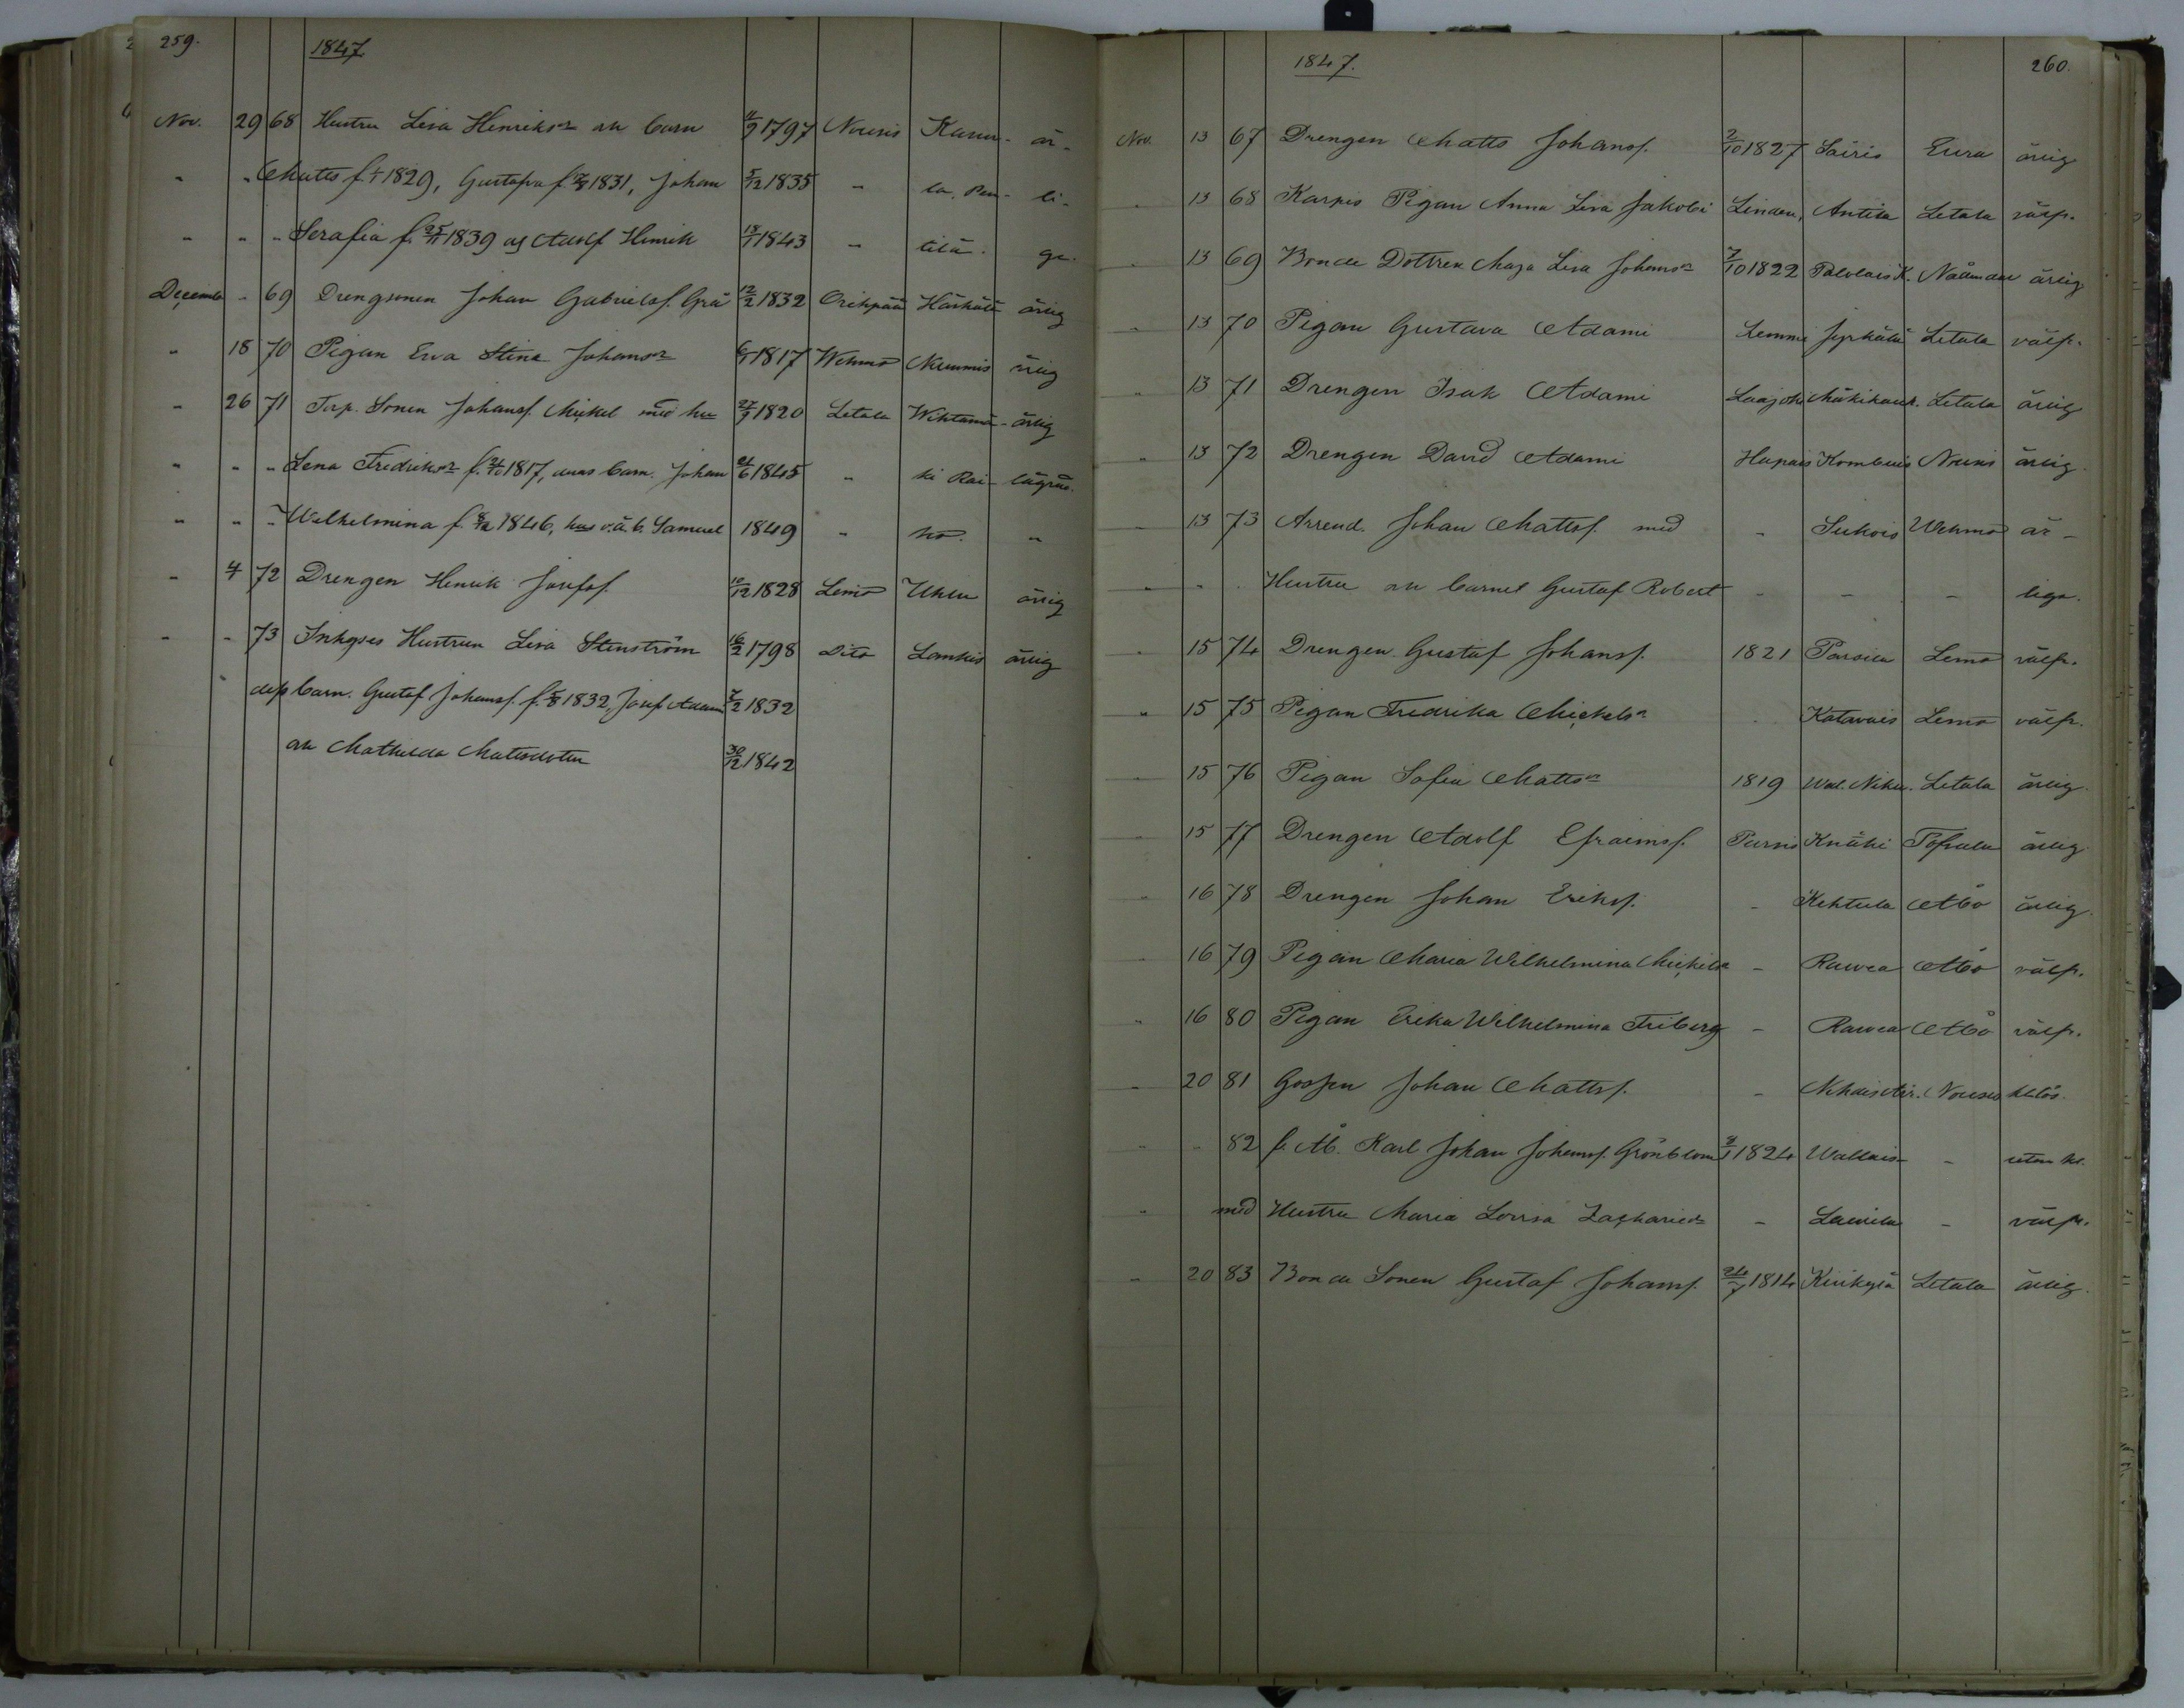 259.
1847.
Nov. 29 68 Hustru Lisa Henriksr au barn 4/9 1797 Nousis Karus- är-
" " Matts f. 1829, Gustafva f. 1831, Johan 5/12 1835 " li-
" " " Serafia f. 25/11 1839 og Adolf Henrik 13/1 1843 " tilä. ga.
Decembr " 69 Drengsonen Johan Gabrielsf. Grä 12/2 1832 Orihpää Härkälä ärlig
" 18 70 Pigan Eva Stina Johansr 6/1 1817 Wehmo Nummis ärlig
" 26 71 Torp. Sonen Johansf. Mickel med hu 27/9 1820 Letala Wehtamä- ärlig
" " " Lena Fredriksr f. 1817, deras barn. Johan 24/6 1845 " ki Rai-
" " " Wilhelmina f. 8/12 1846, hus v.ä.b. Samuel 1849 " "
" 4 72 Drengen Henrik Josefsf. 10/12 1828 Lemo Uhlu ärlig
" " 73 Inhyses Hustrun Lisa Stenström 16/2 1798 Dito Lamsis ärlig
dess barn. Gustaf Johansf. f. 1832, Josef Adam 7/2 1832
au Mathilda Matsdotter 30/12 1842
1847.
260.
Nov. 13 67 Drengen Matts Johansf. 2/10 1827 Sairis Eura ärlig
" 13 68 Karpis Pigan Anna Lisa Jakobi Lindau, Antila Letala välfr.
" 13 69 Bonde Dottren Maja Lisa Johansr 7/10 1822 Palolais K. Nådendal ärlig
" 13 70 Pigan Gustava Adami Lemmi Jyrkälä Letala välfr.
" 13 71 Drengen Isak Adami Laajoki Letala ärlig
" 13 72 Drengen David Adami Hapais Kombuis Nousis ärlig
" 13 73 Arrend. Johan Mattsf. med - Sukois Wehmo är-
" " " Hustru au barnet Gustaf Robert - - - liga.
" 15 74 Drengen Gustaf Johansf. 1821 Parsila Lemo välfr.
" 15 75 Pigan Fredrika Mickelsr Katavais Lemo välfr.
" 15 76 Pigan Sofia Mattsr 1819 Wal. Nihu. Letala ärlig
" 15 77 Drengen Adolf Efraimsf. Purnis Knuki Töfsala ärlig
" 16 78 Drengen Johan Eriksf. - Kehtula Åbo ärlig.
" 16 79 Pigan Maria Wilhelmina Mickelsr - Rauvea Åbo välfr.
" 16 80 Pigan Erika Wilhelmina Friberg - Rauvea Åbo välfr.
" 20 81 Gossen Johan Mattsf. - Nousis
" " 82 f. Åb. Karl Johan Johansf. Grönblom 3/1 1824 Wallais - utan kl.
" med Hustru Maria Lovisa Zachariedr - Lauila - välfr.
" 20 83 Bonde Sonen Gustaf Johansf. 24/7 1814 Kirikylä Letala ärlig.